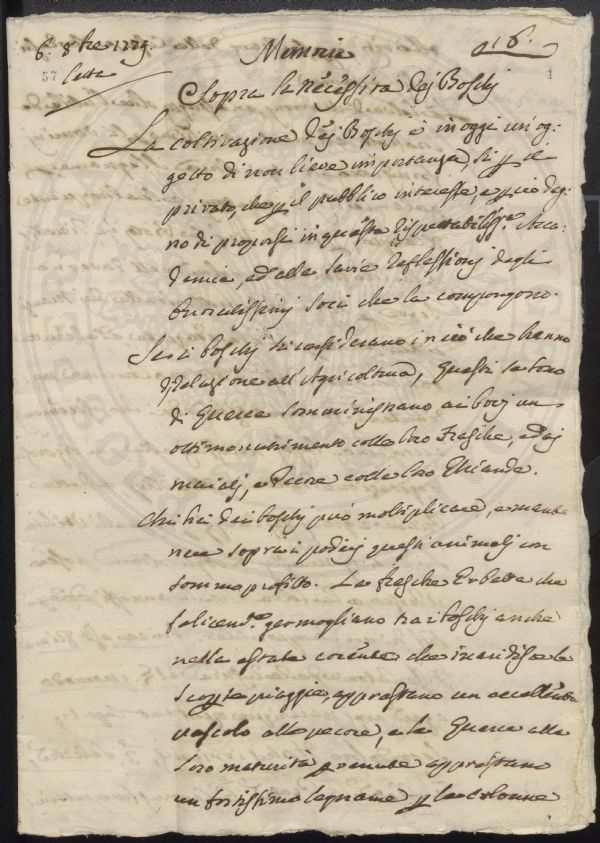 6. 8bre 1779.
Letta
57
Memoria
16.
1
Sopra la Necessità dej Boschj
La coltivazione dej Boschj è in oggi un og:
getto di non lieve importanza, sì p il
privato, che p il pubblico interesse, e p ciò deg:
no di proporsi in questa Rispettabiliss.a Acca:
demia, ed alle savie reflessionj degli
eruditissimj Soci che la compongono.
Se i boschj si considerano in ciò che hanno
di relazione all'Agricoltura, questi se sono
di Querce somministrano ai bovj un
ottimo nutrimento colle loro Frasche, ed aj
maialj, e Pecore colle loro Ghiande.
Chi hà dei boschj può moltiplicare, e mante
nere soprai poderj questi animalj con
sommo profitto. Le fresche Erbette che
felicem.te germogliano tra i boschj anche
nella estate cocente che inaridisce le
scoperte piaggie, apprestano un eccellente
pascolo alle pecore, e le Querce alla
loro maturità pervenute apprestano
un fortissimo legname p le colonne